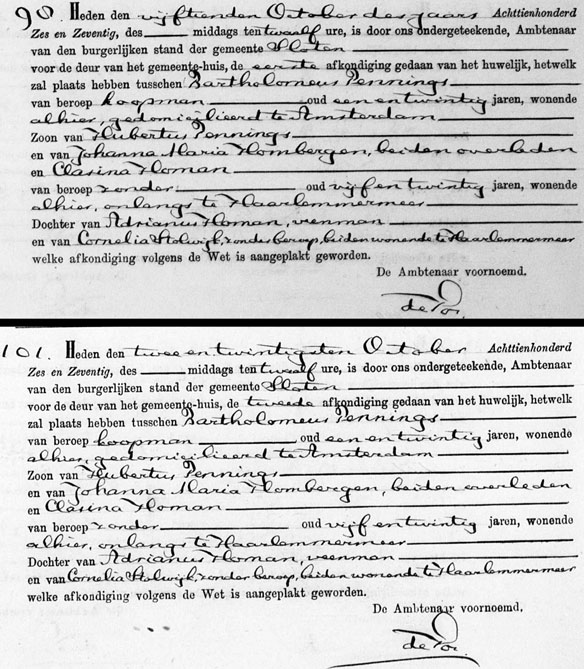 98. Heden den vijftienden October des jaars Achttienhonderd
Zes en Zeventig, des middags ten twaalf ure, is door ons ondergeteekende, Ambtenaar
van den burgerlijken stand der gemeente Sloten
voor de deur van het gemeente-huis, de eerste afkondiging gedaan van het huwelijk, hetwelk
zal plaats hebben tusschen Bartholomeus Pennings
van beroep koopman oud een en twintig jaren, wonende
alhier, gedomicilieerd te Amsterdam
Zoon van Hubertus Pennings
en van Johanna Maria Hombergen, beiden overleden
en Clasina Homan
van beroep zonder oud vijf en twintig jaren, wonende
alhier, onlangs te Haarlemmermeer
Dochter van Adrianus Homan, veenman
en van Cornelia Stolwijk, zonder beroep, beiden wonende te Haarlemmermeer
welke afkondiging volgens de Wet is aangeplakt geworden.
De Ambtenaar voornoemd.
101. Heden den twee en twintigsten October Achttienhonderd
Zes en Zeventig, des middags ten twaalf ure, is door ons ondergeteekende, Ambtenaar
van den burgerlijken stand der gemeente Sloten
voor de deur van het gemeente-huis, de tweede afkondiging gedaan van het huwelijk, hetwelk
zal plaats hebben tusschen Bartholomeus Pennings
van beroep koopman oud een en twintig jaren, wonende
alhier, gedomicilieerd te Amsterdam
Zoon van Hubertus Pennings
en van Johanna Maria Hombergen, beiden overleden
en Clasina Homan
van beroep zonder oud vijf en twintig jaren, wonende
alhier, onlangs te Haarlemmermeer
Dochter van Adrianus Homan, veenman
en van Cornelia Stolwijk, zonder beroep, beiden wonende te Haarlemmermeer
welke afkondiging volgens de Wet is aangeplakt geworden.
De Ambtenaar voornoemd,